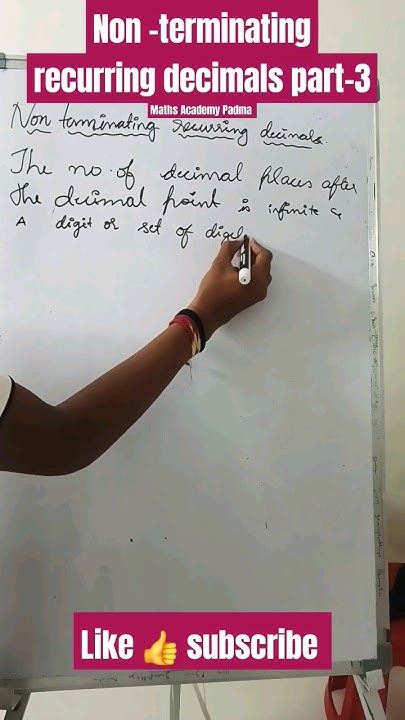 Non -terminating
recurring decimals part-3
Maths Academy Padma
Non terminating recurring decimals.
The no. of decimal places after
the decimal point is infinite &
A digit or set of digi
Like 👍 subscribe